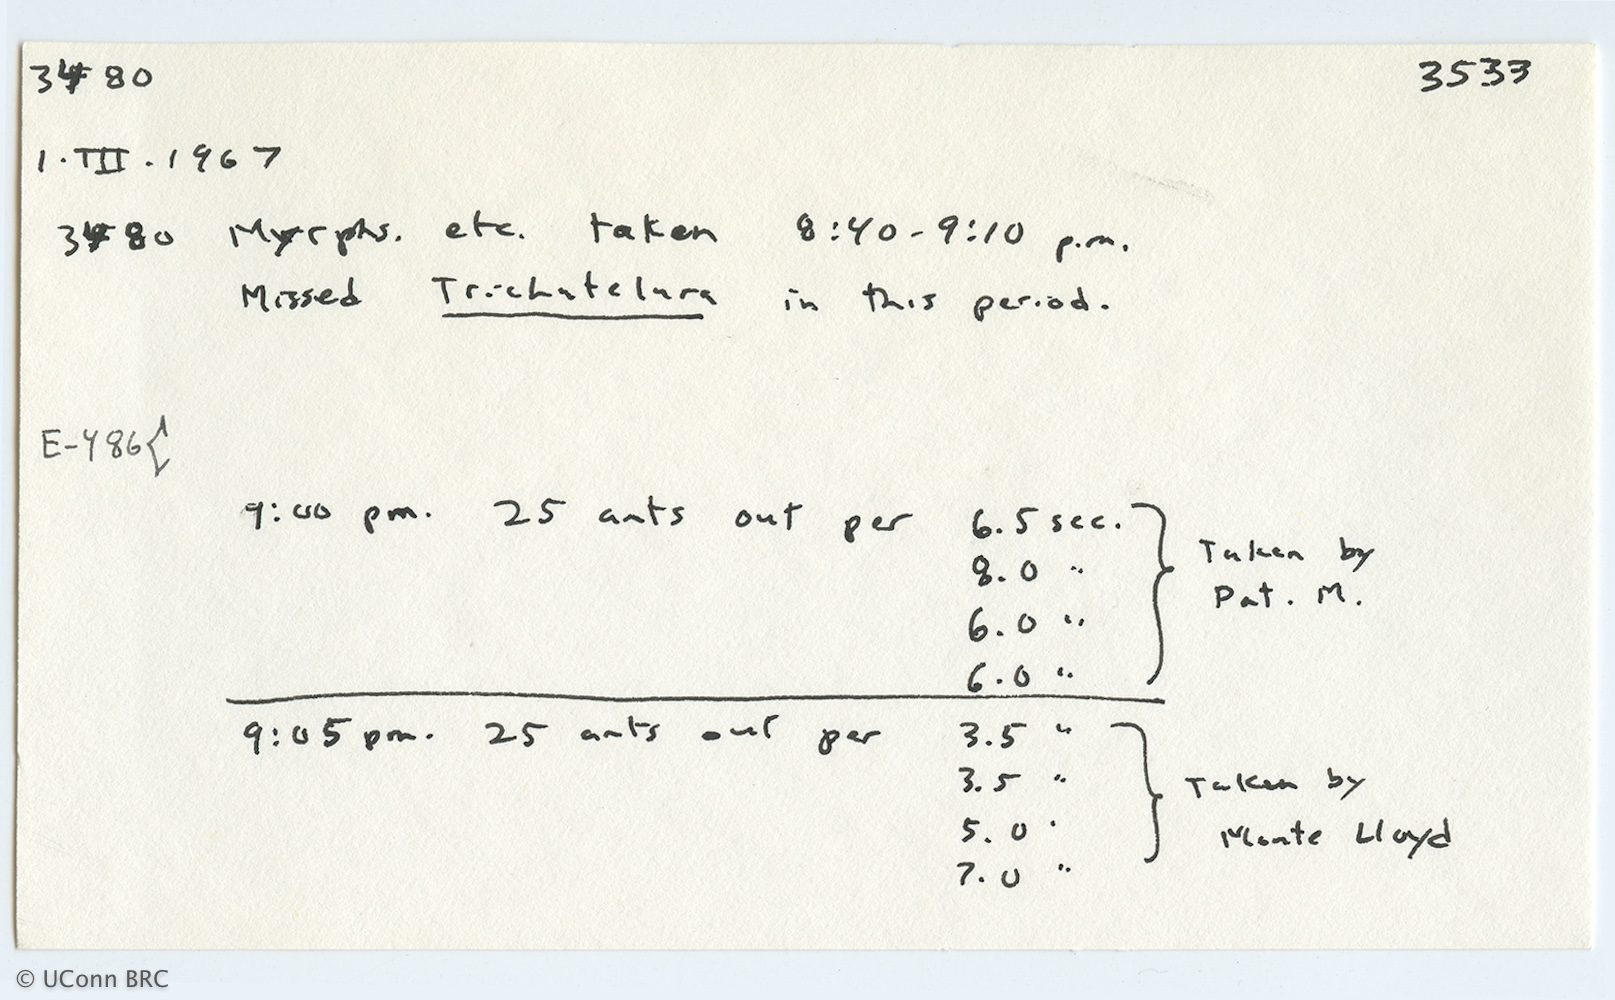 3480 3533
1.III.1967
3480 Myrphs. etc. taken 8:40-9:10 p.m.
Missed Trichatelura in this period.
E-486{
9:00 pm. 25 ants out per 6.5 sec.
8.0 "
6.0 "
6.0 "
Taken by
Pat. M.
9:05 pm. 25 ants out per 3.5 "
3.5 "
5.0 "
7.0 "
Taken by
Monte Lloyd
© UConn BRC